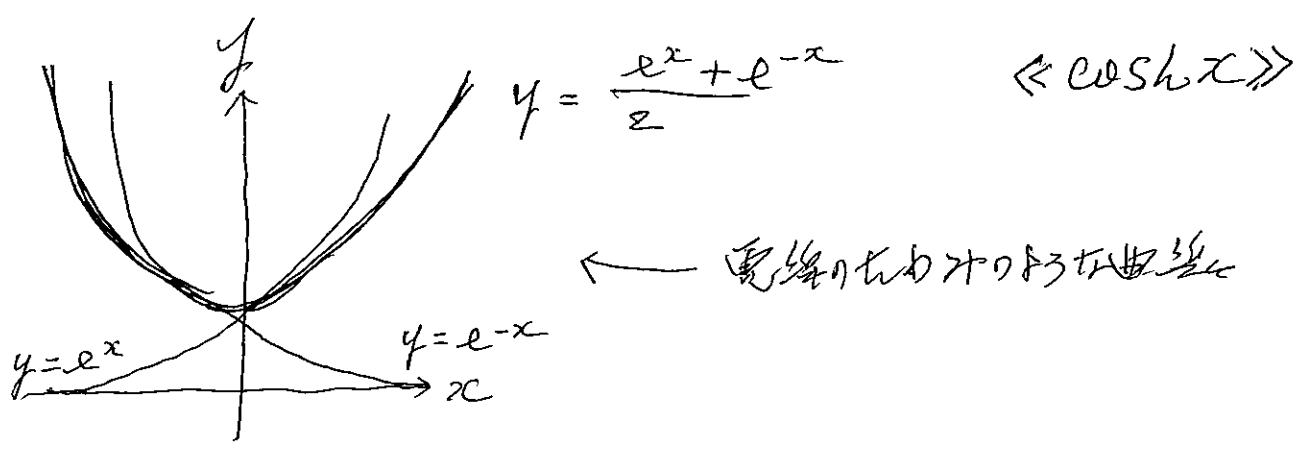 y
y = \frac{e^x + e^{-x}}{2}
≪cosh x≫
← 電線のたわみのような曲線
y = e^x
y = e^{-x}
x